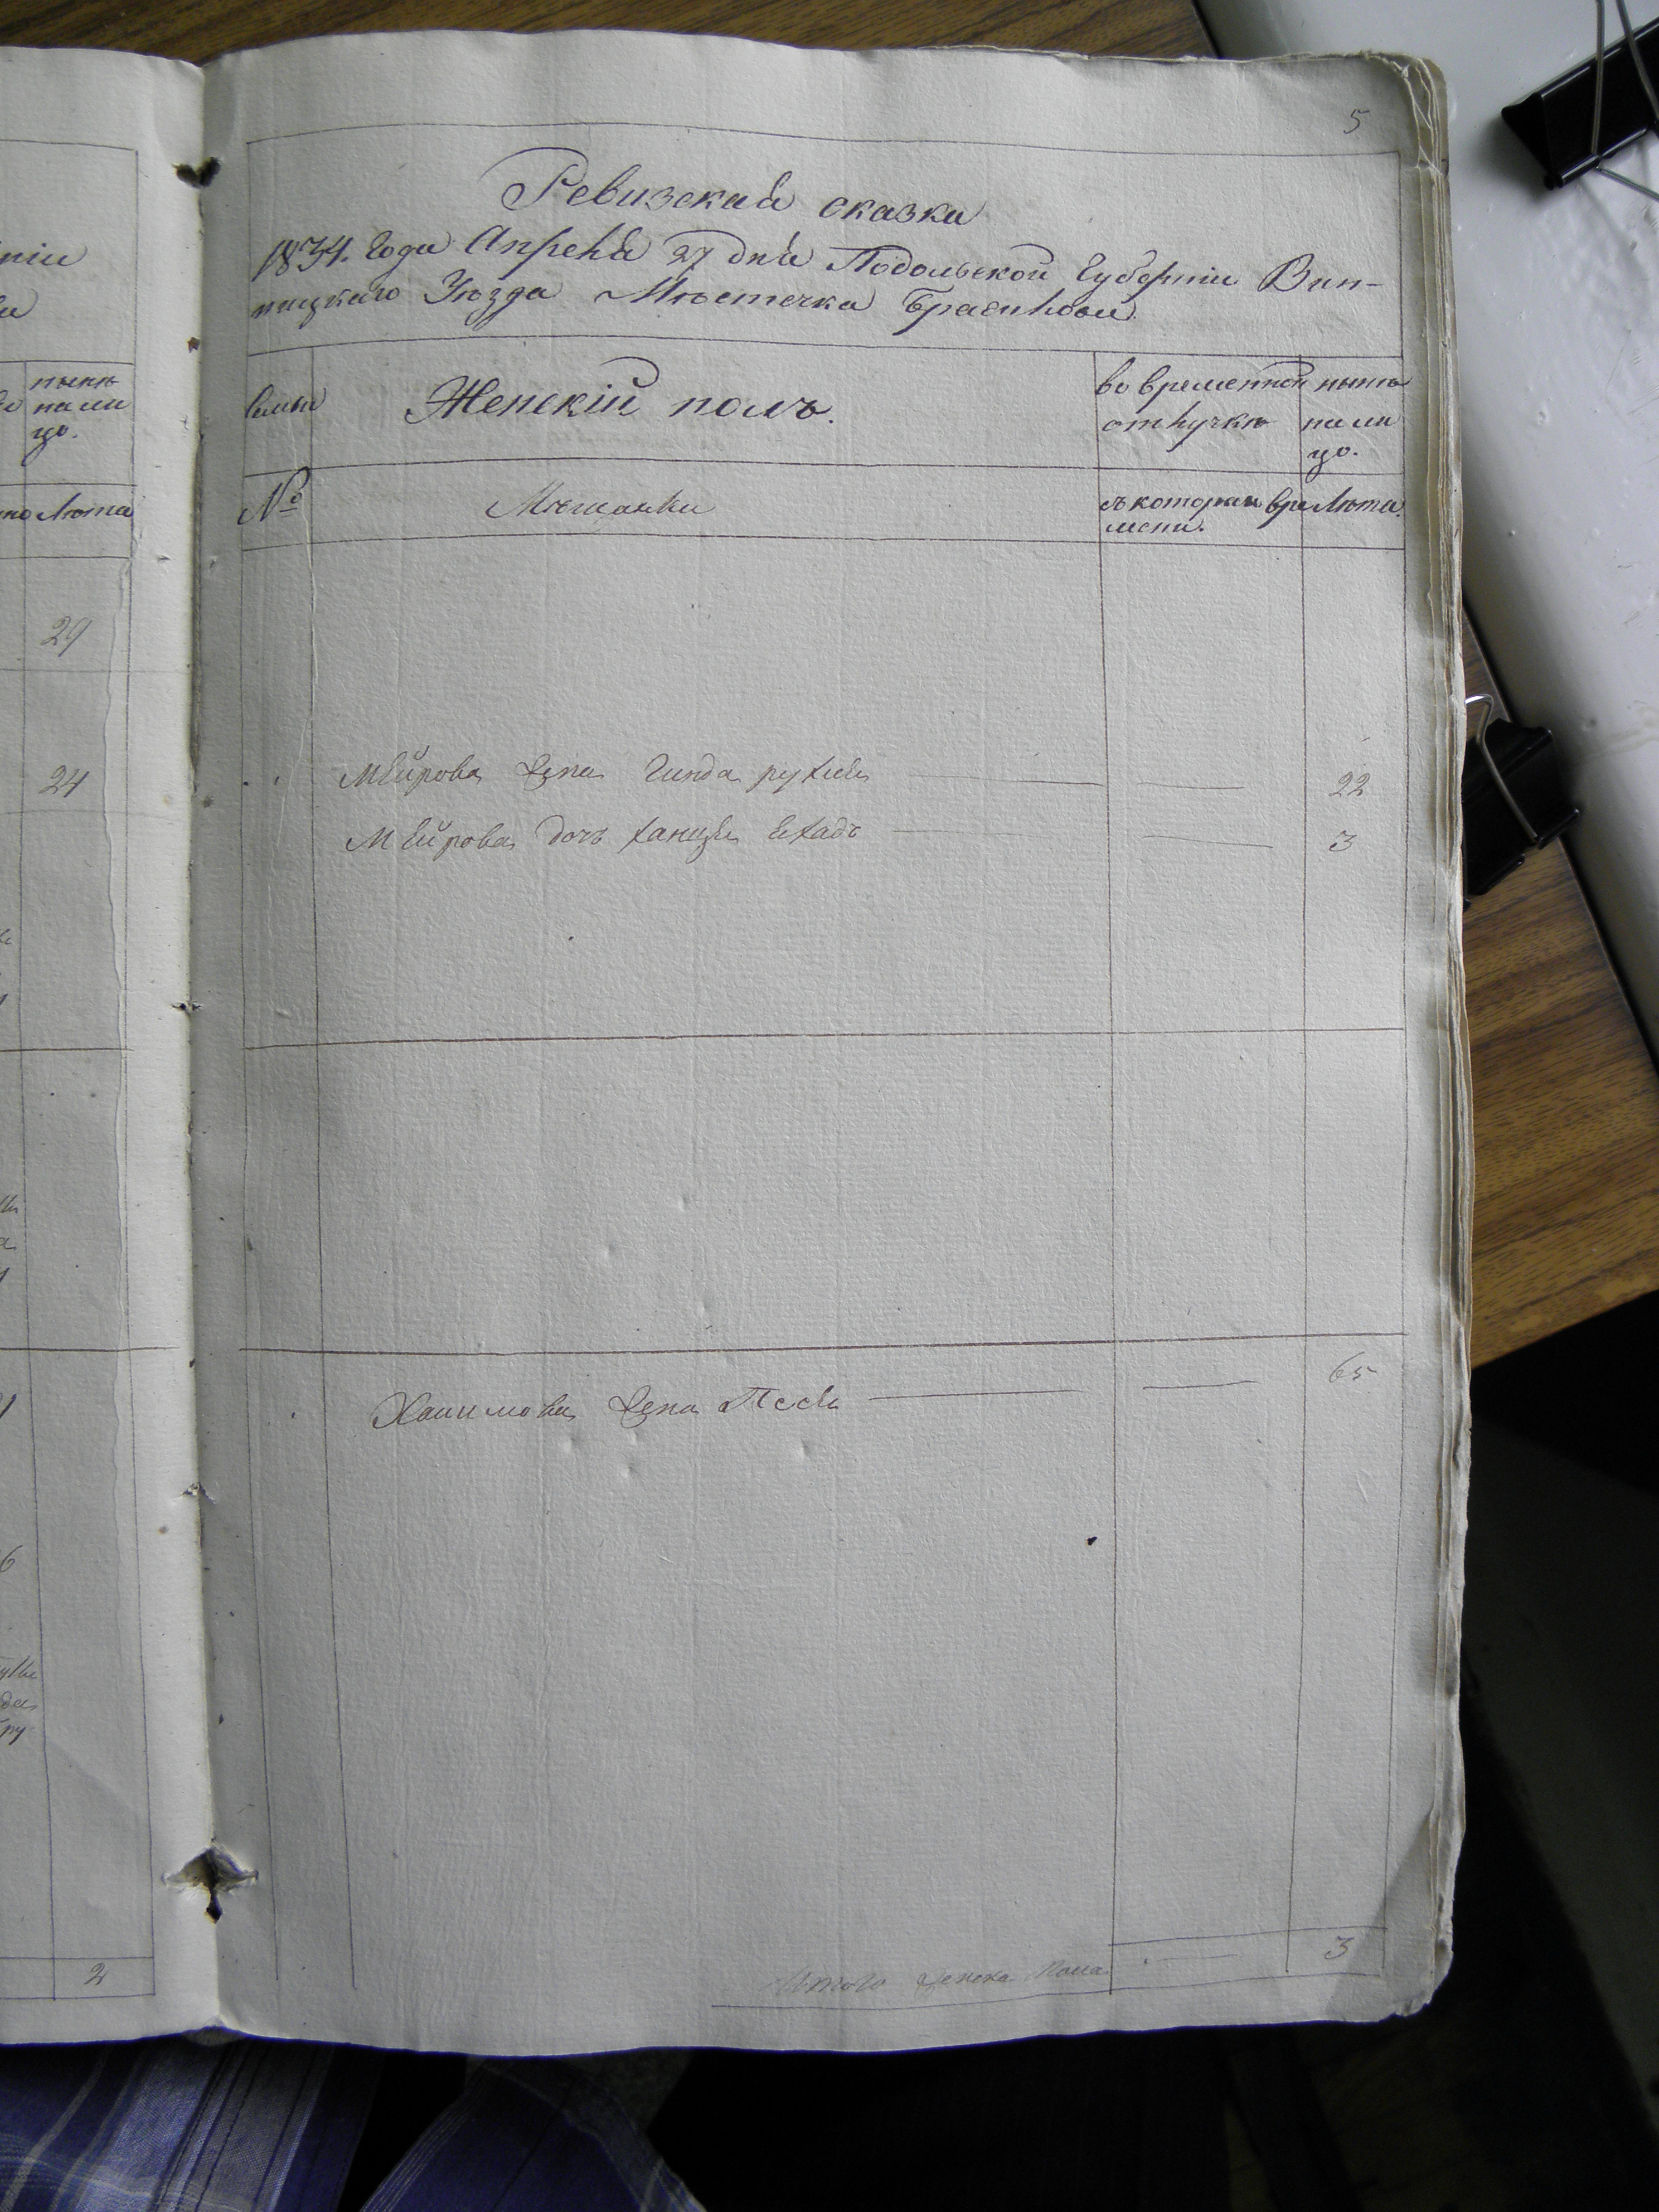 5
Ревизская сказка
1834. Года Апреля 27 дня Подольской Губерніи Вин-
ницкаго Уѣзда Мѣстечка Браилова.
семьи
Женскій полъ.
во временной отлучкѣ
нынѣ на ли цо.
№
Мѣщанки
съ котораго вре мени.
Лѣта.
Мейрова жена Гинда рухля 22
Мейрова дочь ханця 3
Хаимова жена Песя 65
Итого женска пола 3
нынѣ
на ли
цо.
Лѣта
29
24
2